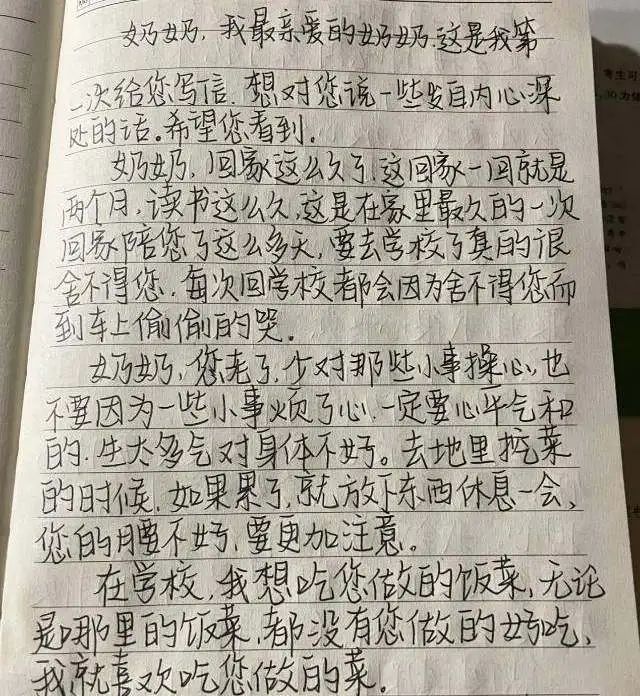 奶奶，我最亲爱的奶奶，这是我第
一次给您写信，想对您说一些发自内心深
处的话。希望您看到。
奶奶，回家这么久了，这回家一回就是
两个月，读书这么久，这是在家里最久的一次
回家陪您了这么多天，要去学校了真的很
舍不得您，每次回学校都会因为舍不得您而
到车上偷偷的哭。
奶奶，您老了，少对那些小事操心，也
不要因为一些小事烦了心，一定要心平气和
的，生太多气对身体不好。去地里挖菜
的时候，如果累了，就放下东西休息一会，
您的腰不好，要更加注意。
在学校，我想吃您做的饭菜，无论
是哪里的饭菜，都没有您做的好吃，
我就喜欢吃您做的菜。
考生可